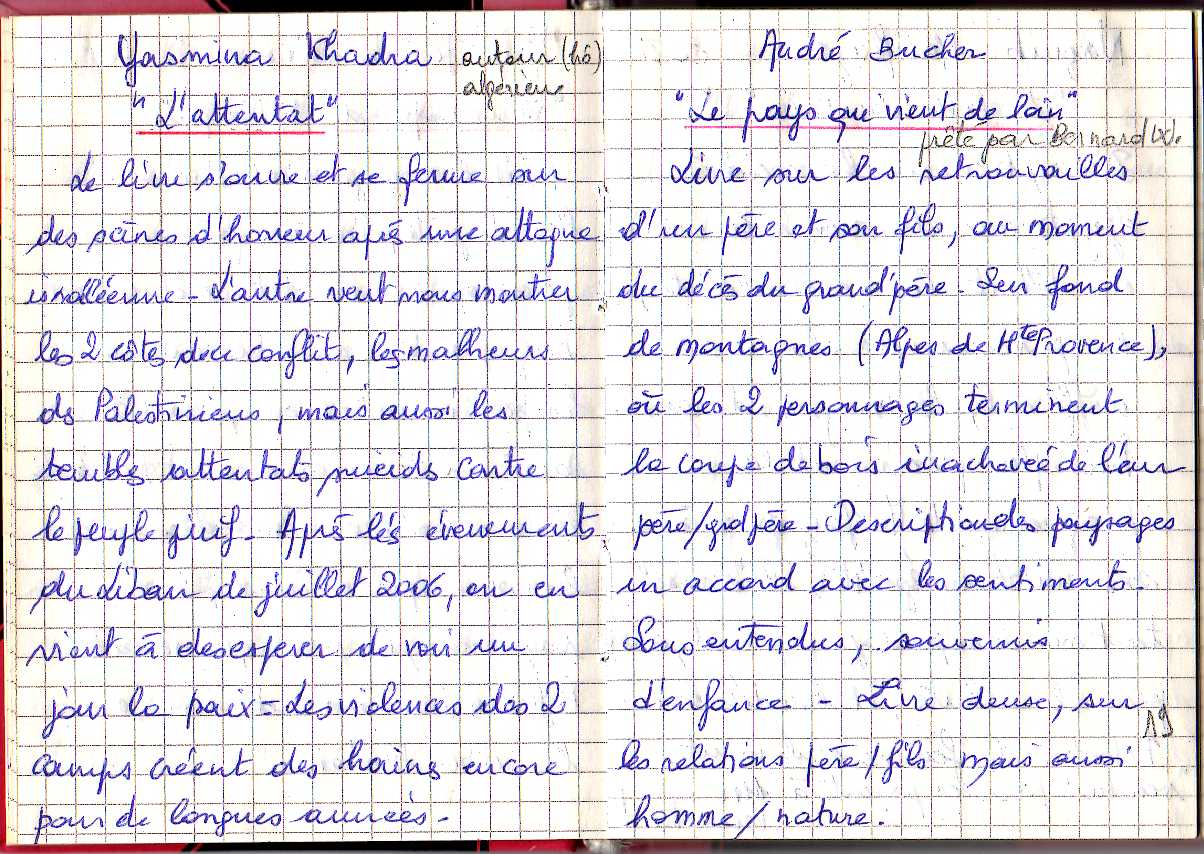 Yasmina Khadra auteur (hô)
algérien
"L'attentat"
Le livre s'ouvre et se ferme sur
des scènes d'horreur après une attaque
israëlienne - L'auteur veut nous montrer
les 2 côtés du conflit, les malheurs
ds Palestiniens, mais aussi les
terribles attentats suicids contre
le peuple juif. Après les évènements
du Liban de juillet 2006, on en
vient à desesperer de voir un
jour la paix = Les violences des 2
camps créent des haines encore
pour de longues années -
André Bucher
"Le pays qui vient de loin"
prêté par Bernard
Livre sur les retrouvailles
d'un père et son fils, au moment
du décès du grand'père. Sur fond
de montagnes (Alpes de Hte Provence),
où les 2 personnages terminent
la coupe de bois inachevée de leur
père/grdpère - Description des paysages
en accord avec les sentiments -
Sous entendus, souvenirs
d'enfance - Livre dense, sur
les relations père/fils mais aussi
homme/nature.
19